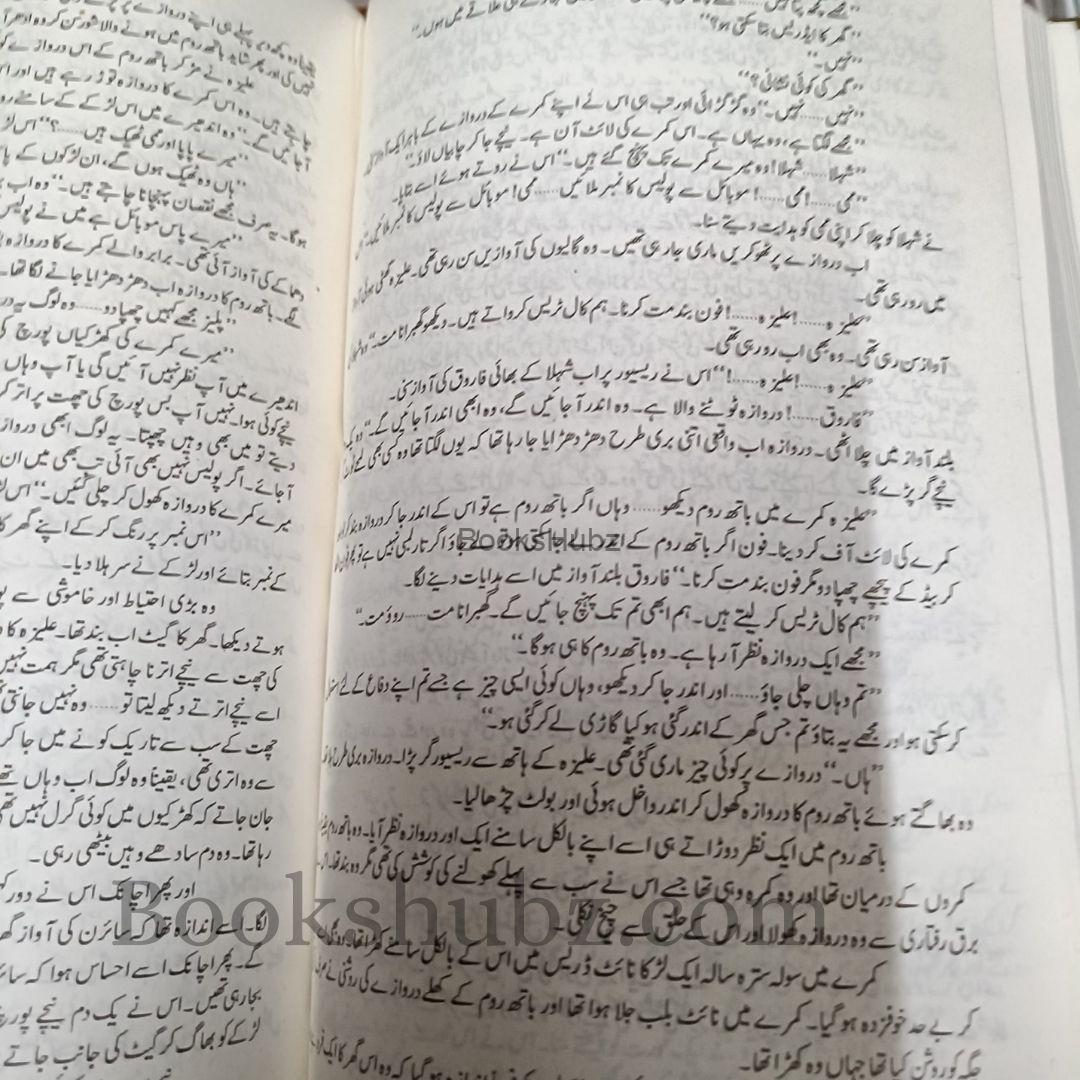 "گھر کا ایڈریس بتا سکتی ہو؟"
"نہیں۔"
"گھر کی کوئی نشانی؟"
"نہیں……نہیں۔" وہ گڑگڑائی اور تب ہی اس نے اپنے کمرے کے دروازے کے باہر ایک
"مجھے لگتا ہے، وہ یہاں ہے۔ اس کمرے کی لائٹ آن ہے۔ نیچے جا کر چابیاں لاؤ۔"
"شہلا……شہلا! وہ میرے کمرے تک پہنچ گئے ہیں۔" اس نے روتے ہوئے اسے بتایا۔
"ممی……! ممی……! موبائل سے پولیس کا نمبر ملائیں……ممی! موبائل سے پولیس کا نمبر ملائیں۔"
نے شہلا کو چلا کر اپنی ممی کو ہدایت دیتے سنا۔
اب دروازے پر ٹھوکریں ماری جا رہی تھیں۔ وہ گالیوں کی آوازیں سن رہی تھی۔ علیزہ
میں رو رہی تھی۔
"علیزہ……! علیزہ……! فون بند مت کرنا۔ ہم کال ٹریس کرواتے ہیں۔ دیکھو گھبرانا مت۔"
آواز سن رہی تھی۔ وہ بھی اب رو رہی تھی۔
"علیزہ……! علیزہ……!" اس نے ریسیور پر اب شہلا کے بھائی فاروق کی آواز سنی۔
"فاروق……! دروازہ ٹوٹنے والا ہے۔ وہ اندر آ جائیں گے، وہ ابھی اندر آ جائیں گے۔"
بلند آواز میں چلا اٹھی۔ دروازہ اب واقعی اتنی بری طرح دھڑ دھڑایا جا رہا تھا کہ یوں لگتا تھا وہ کسی بھی لمحے
نیچے گر پڑے گا۔
"علیزہ کمرے میں باتھ روم دیکھو……وہاں اگر باتھ روم ہے تو اس کے اندر جا کر دروازہ بند کر لو
کمرے کی لائٹ آف کر دینا۔ فون اگر باتھ روم کے اندر لے جا سکتی ہو تو لے جاؤ اگر تار لمبی نہیں ہے تو پھر فون
کر بیڈ کے پیچھے چھپا دو مگر فون بند مت کرنا۔" فاروق بلند آواز میں اسے ہدایات دینے لگا۔
"ہم کال ٹریس کر لیتے ہیں۔ ہم ابھی تم تک پہنچ جائیں گے۔ گھبرانا مت……روؤ مت۔"
"مجھے ایک دروازہ نظر آ رہا ہے۔ وہ باتھ روم کا ہی ہوگا۔"
"تم وہاں چلی جاؤ……اور اندر جا کر دیکھو، وہاں کوئی ایسی چیز ہے جسے تم اپنے دفاع کے لئے استعمال
کر سکتی ہو اور مجھے یہ بتاؤ تم جس گھر کے اندر گئی ہو کیا گاڑی لے کر گئی ہو۔"
"ہاں۔" دروازے پر کوئی چیز ماری گئی تھی۔ علیزہ کے ہاتھ سے ریسیور گر پڑا۔ دروازہ بری طرح
وہ بھاگتے ہوئے باتھ روم کا دروازہ کھول کر اندر داخل ہوئی اور بولٹ چڑھا لیا۔
باتھ روم میں ایک نظر دوڑاتے ہی اسے اپنے بالکل سامنے ایک اور دروازہ نظر آیا۔ وہ باتھ روم
کمروں کے درمیان تھا اور وہ کمرہ وہی تھا جسے اس نے سب سے پہلے کھولنے کی کوشش کی تھی مگر وہ بند تھا۔
برق رفتاری سے وہ دروازہ کھولا اور اس کے حلق سے چیخ نکلی۔
کمرے میں سولہ سترہ سالہ ایک لڑکا نائٹ ڈریس میں اس کے بالکل سامنے کھڑا تھا۔
کر بے حد خوفزدہ ہو گیا۔ کمرے میں نائٹ بلب جلا ہوا تھا اور باتھ روم کے کھلے دروازے کی روشنی نے
جگہ کو روشن کیا تھا جہاں وہ کھڑا تھا۔
نہیں کی اور پھر شاید باتھ روم میں ہونے والا شور سن کر وہ ادھر
علیزہ نے مڑ کر باتھ روم کے اس دروازے کو
چاہتے ہیں۔ وہ اس کمرے کا دروازہ توڑ رہے ہیں اور
آ جائیں گے۔" وہ اندھیرے میں اس لڑکے کے سامنے
"میرے پاپا اور ممی ٹھیک ہیں……؟" اس
"ہاں وہ ٹھیک ہوں گے، ان لڑکوں کے
ہوگا۔ یہ صرف مجھے نقصان پہنچانا چاہتے ہیں۔" وہ اب
"میرے پاس موبائل ہے میں نے پولیس
دھماکے کی آواز آئی تھی۔ برابر والے کمرے کا دروازہ
لگے۔ باتھ روم کا دروازہ اب دھڑ دھڑایا جانے لگا تھا۔
"پلیز مجھے کہیں چھپا دو……وہ لوگ یہ
"میرے کمرے کی کھڑکیاں پورچ کی
اندھیرے میں آپ نظر نہیں آئیں گی یا آپ وہاں
نیچے کوئی ہوا۔ نہیں آپ بس پورچ کی چھت پر اتر
دیتے تو میں بھی وہیں چھپتا۔ یہ لوگ ابھی دروازہ
آ جائے۔ اگر پولیس نہیں بھی آئی تب بھی میں ان
میرے کمرے کا دروازہ کھول کر چلی گئیں۔"
"اس نمبر پر رنگ کر کے اپنے گھر
کے نمبر بتائے اور لڑکے نے سر ہلا دیا۔
وہ بڑی احتیاط اور خاموشی سے
ہوتے دیکھا۔ گھر کا گیٹ اب بند تھا۔ علیزہ کا
کی چھت سے نیچے اترنا چاہتی تھی مگر ہمت نہیں
اسے نیچے اترتے دیکھ لیتا تو……وہ نہیں جانتی
چھت کے سب سے تاریک کونے میں جا کر
سے وہ اتری تھی، یقیناً وہ لوگ اب وہاں تھے
جان جاتے کہ کھڑکیوں میں کوئی گرل نہیں تھی
رہا تھا۔ وہ دم سادھے وہیں بیٹھی رہی۔
اور پھر اچانک اس نے دور
لگا۔ اسے اندازہ تھا کہ سائرن کی آواز
گے۔ پھر اچانک اسے احساس ہوا کہ
بجا رہی تھیں۔ اس نے یک دم نیچے پورچ
لڑکے کو بھاگ کر گیٹ کی جانب جاتے
BooksHubz
Bookshubz.com